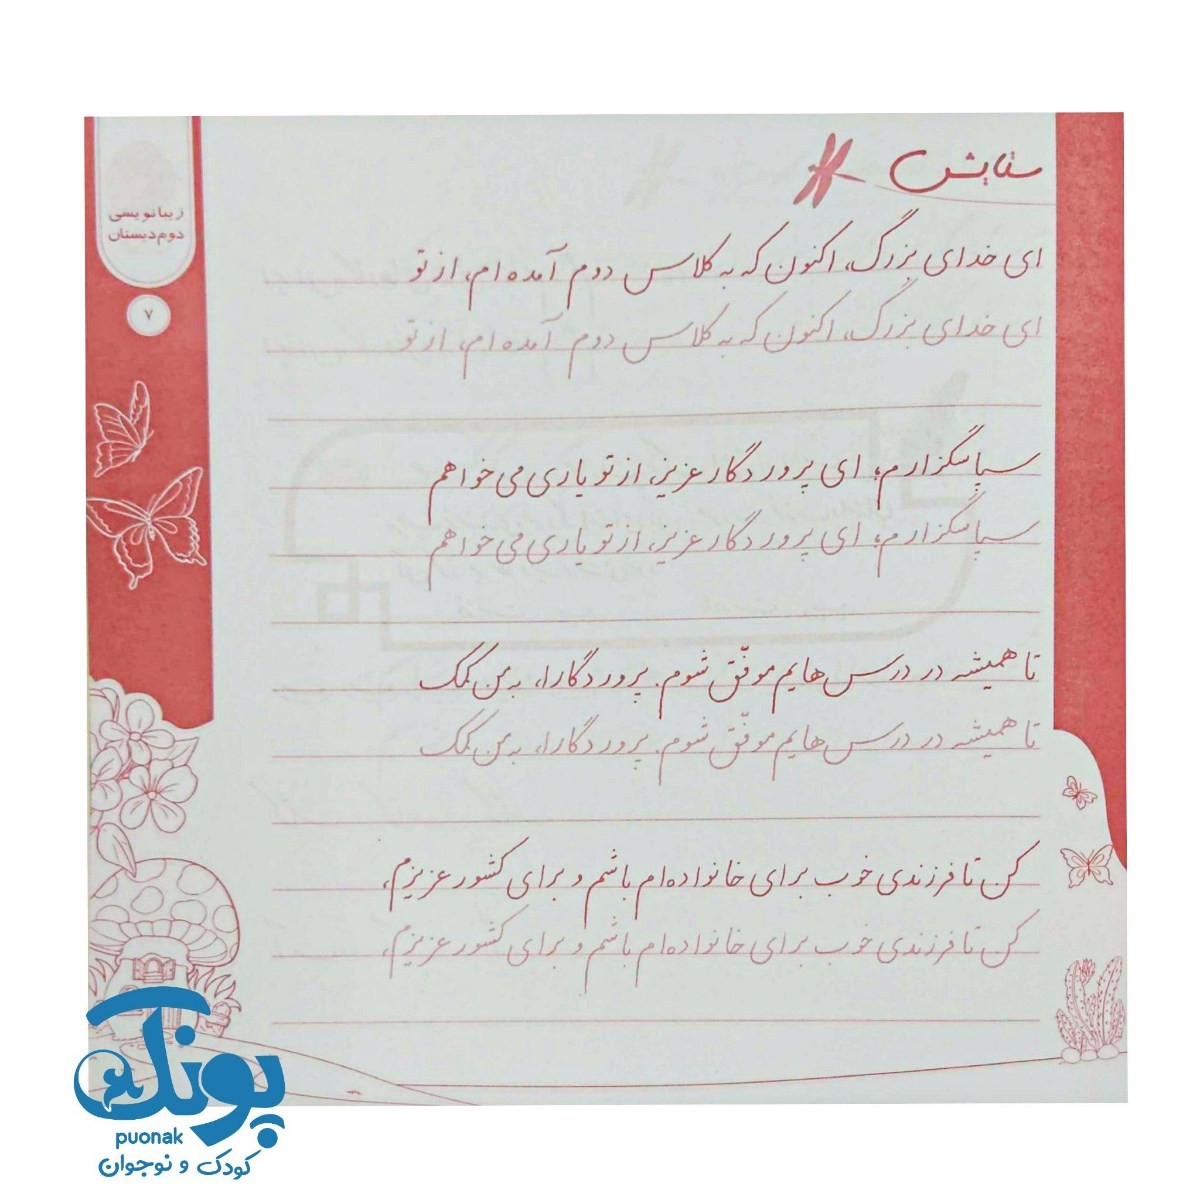 ستایش
زیبانویسی
دوم دبستان
۷
ای خدای بزرگ، اکنون که به کلاس دوم آمده ام، از تو
ای خدای بزرگ، اکنون که به کلاس دوم آمده ام، از تو
سپاسگزارم؛ ای پروردگار عزیز، از تو یاری می خواهم
سپاسگزارم؛ ای پروردگار عزیز، از تو یاری می خواهم
تا همیشه در درس هایم موفّق شوم. پروردگارا، به من کمک
تا همیشه در درس هایم موفّق شوم. پروردگارا، به من کمک
کن تا فرزندی خوب برای خانواده ام باشم و برای کشور عزیزم،
کن تا فرزندی خوب برای خانواده ام باشم و برای کشور عزیزم،
پونک
puonak
کودک و نوجوان